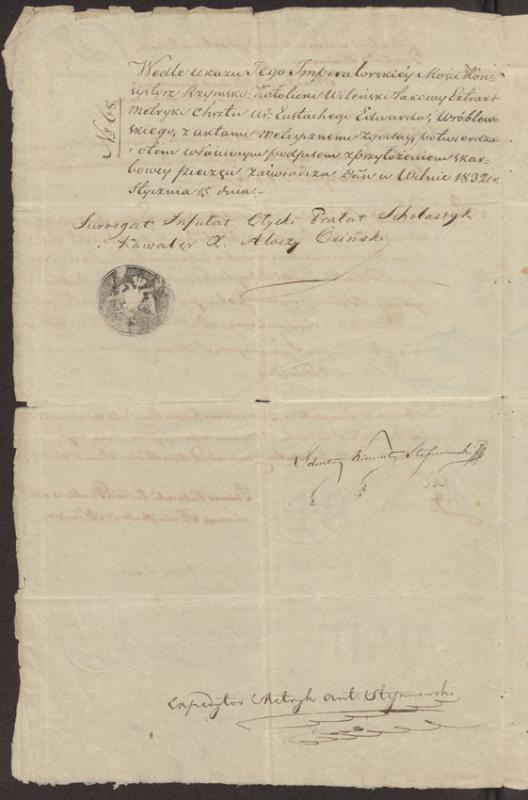 Wedle ukazu Jego Imperatorskiéy Mości Kon=
systorz Rzymsko-Katolicki Wileński takowy Extrakt
Metryki Chrztu Ur: Eustachego Edwarda, Wróblew=
skiego, z aktami Metrycznemi zgodny, potwierdza
i o tém właściwym podpisem z przyłożeniem Skar=
bowey pieczęci zaświadcza. Dan w Wilnie 1832 r.
Stycznia 15 dnia.-
No 68.
Surrogat Infułat Ołycki Prałat Scholastyk
i Kawaler X. Aloizy Osiński
Stefanowski
Expedytor Metryk Ant. Stefanowski